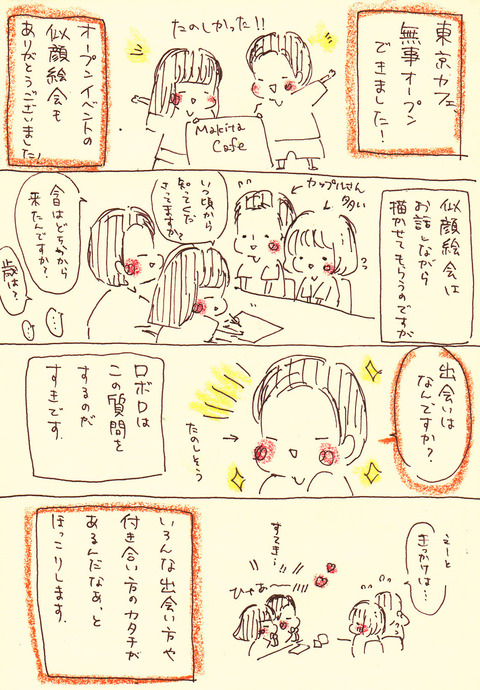 東京カフェ
無事オープン
できました!
たのしかった!!
Makita
Cafe
オープンイベントの
似顔絵会も
ありがとうございました
似顔絵会は
お話しながら
描かせてもらうのですが
カップルさん
多い
いつ頃から
知ってくだ
さってますか?
今日はどちらから
来たんですか?
歳は?
出会いは
なんですか?
たのしそう
ロボロは
この質問を
するのが
すきです.
えーと
きっかけは…
すてき…
ひゃあ〜!!!!
いろんな出会い方や
付き合い方のカタチが
あるんだなぁ、と
ほっこりします.